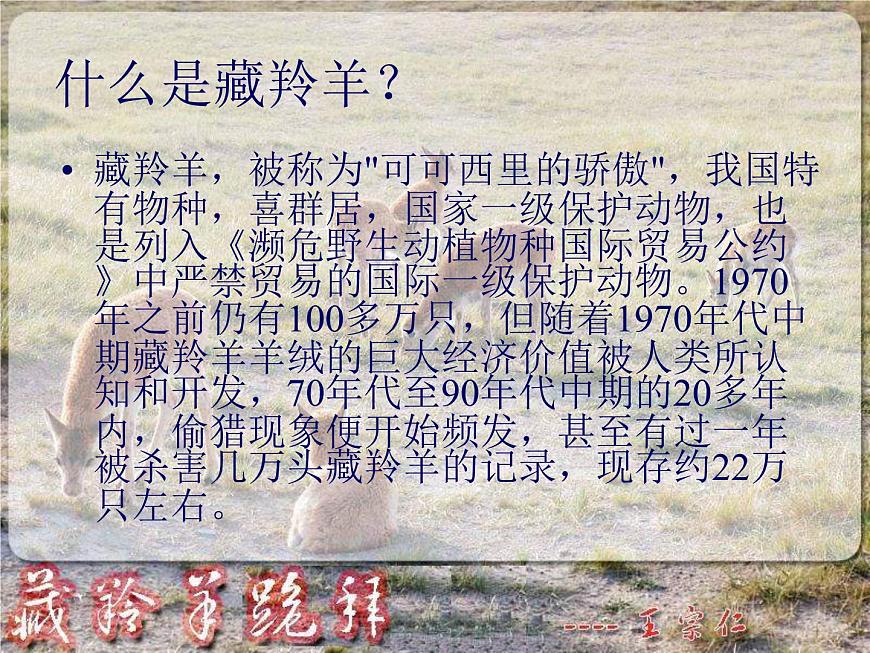 什么是藏羚羊？
• 藏羚羊，被称为"可可西里的骄傲"，我国特
有物种，喜群居，国家一级保护动物，也
是列入《濒危野生动植物种国际贸易公约
》中严禁贸易的国际一级保护动物。1970
年之前仍有100多万只，但随着1970年代中
期藏羚羊羊绒的巨大经济价值被人类所认
知和开发，70年代至90年代中期的20多年
内，偷猎现象便开始频发，甚至有过一年
被杀害几万头藏羚羊的记录，现存约22万
只左右。
藏羚羊跪拜
----王宗仁